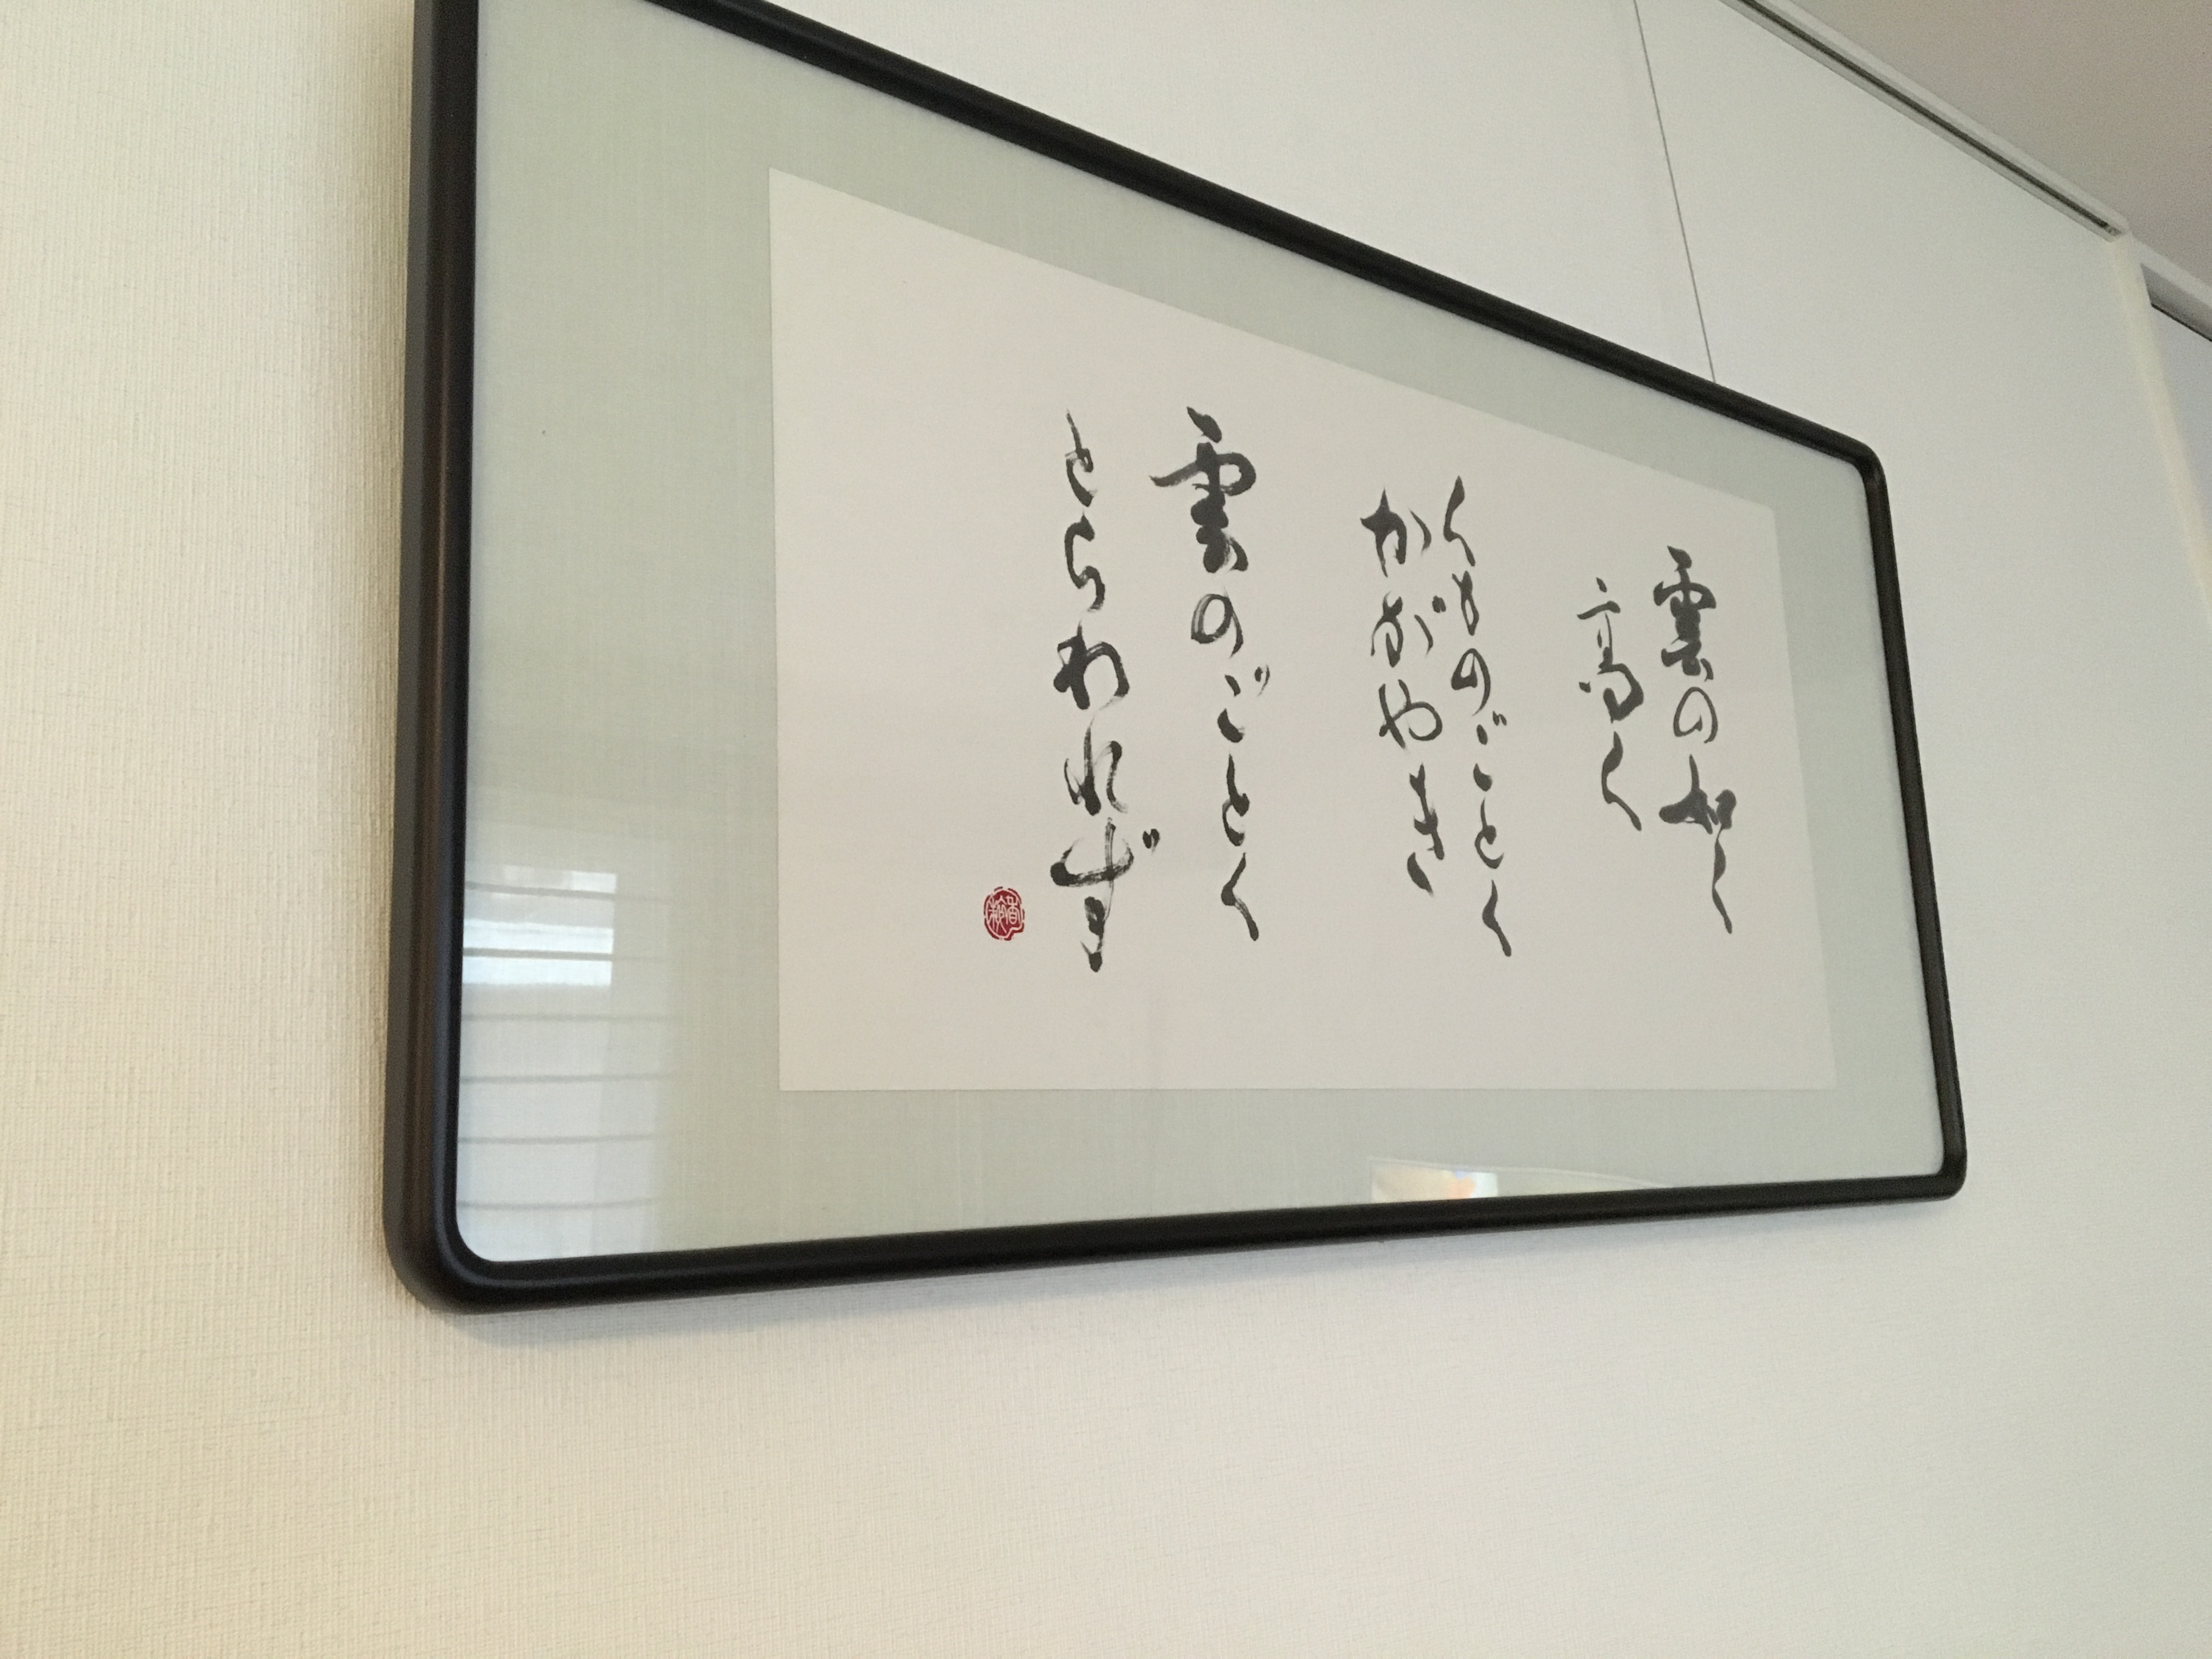 雲の如く
高く
くものごとく
かがやき
雲のごとく
とらわれず